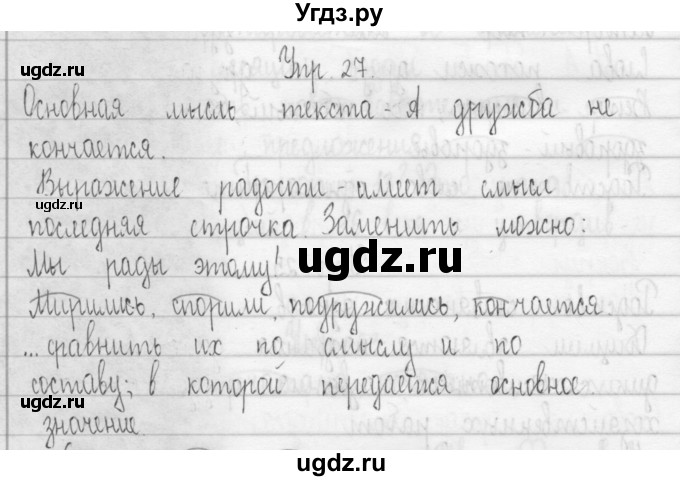 Угдз.ру
ugdz.ru ugdz.ru
Упр. 27
Основная мысль текста - А дружба не
кончается.
Выражение радости - имеет смысл
ugdz.ru ugdz.ru
последняя строчка Заменить можно:
Мы рады этому!
ugdz.ru
Мирились, спорили, подружились, кончается
ugdz.ru
... сравнить их по смыслу и по
составу, в которой передается основное
ugdz.ru
значение.
ugdz.ru